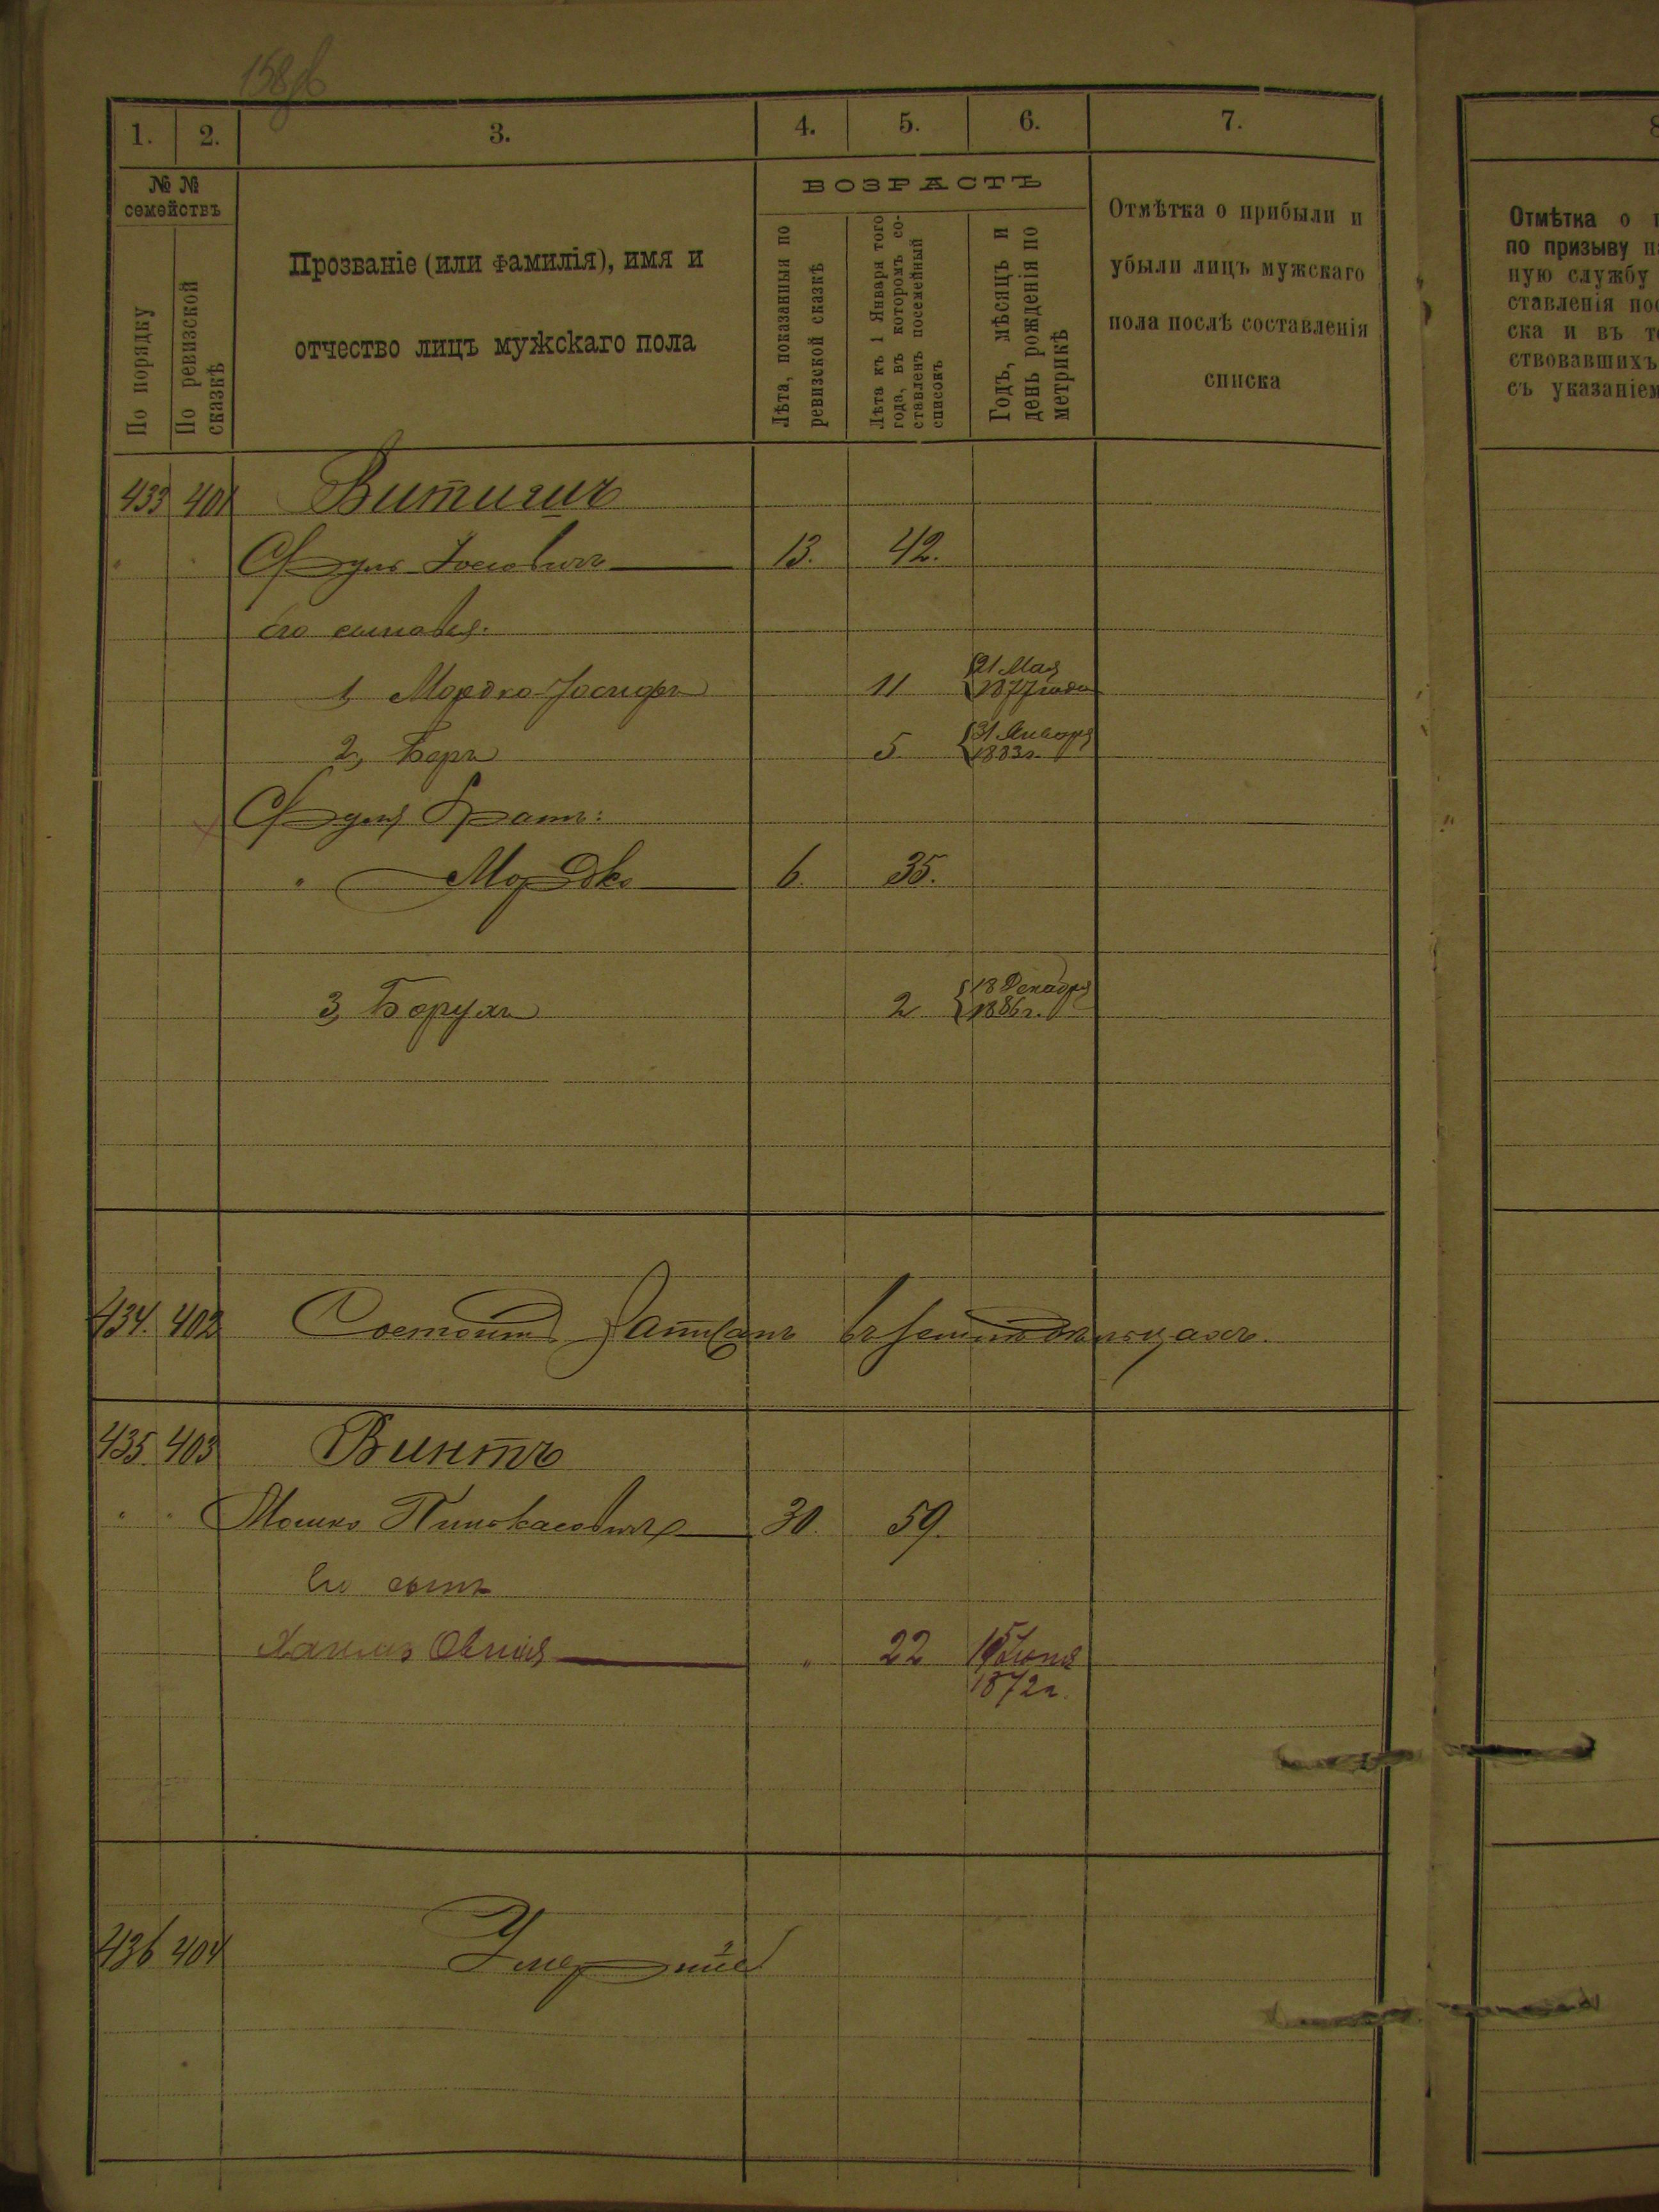 158об
1. 2. 3. 4. 5. 6. 7.
№ №
семействъ
По порядку
По ревизской
сказкѣ
Прозваніе (или фамилія), имя и
отчество лицъ мужскаго пола
ВОЗРАСТЪ
Лѣта, показанныя по
ревизской сказкѣ
Лѣта къ 1 Января того
года, въ которомъ со-
ставленъ посемейный
списокъ
Годъ, мѣсяцъ и
день рожденія по
метрикѣ
Отмѣтка о прибыли и
убыли лицъ мужскаго
пола послѣ составленія
списка
8
Отмѣтка о
по призыву
ную службу
ставленія
ска и въ
ствовавшихъ
съ указаніем
433 401
" " Іосіовичъ 13. 42.
его сыновья.
1, Мордко-Іосифъ 11 21 Мая
1877 года
2, Беръ 5 31 Января
1883 г.
Братъ:
" Мордко 6. 35.
3, Борухъ 2 18 Декабря
1886 г.
434. 402 Состоитъ записанъ въ земледѣльцахъ.
435. 403 Винтъ
" " Мошко Пинхасовичъ 30. 59.
Его сынъ
Овшія " 22 15 Іюня
1872 г.
436 404 Умершій